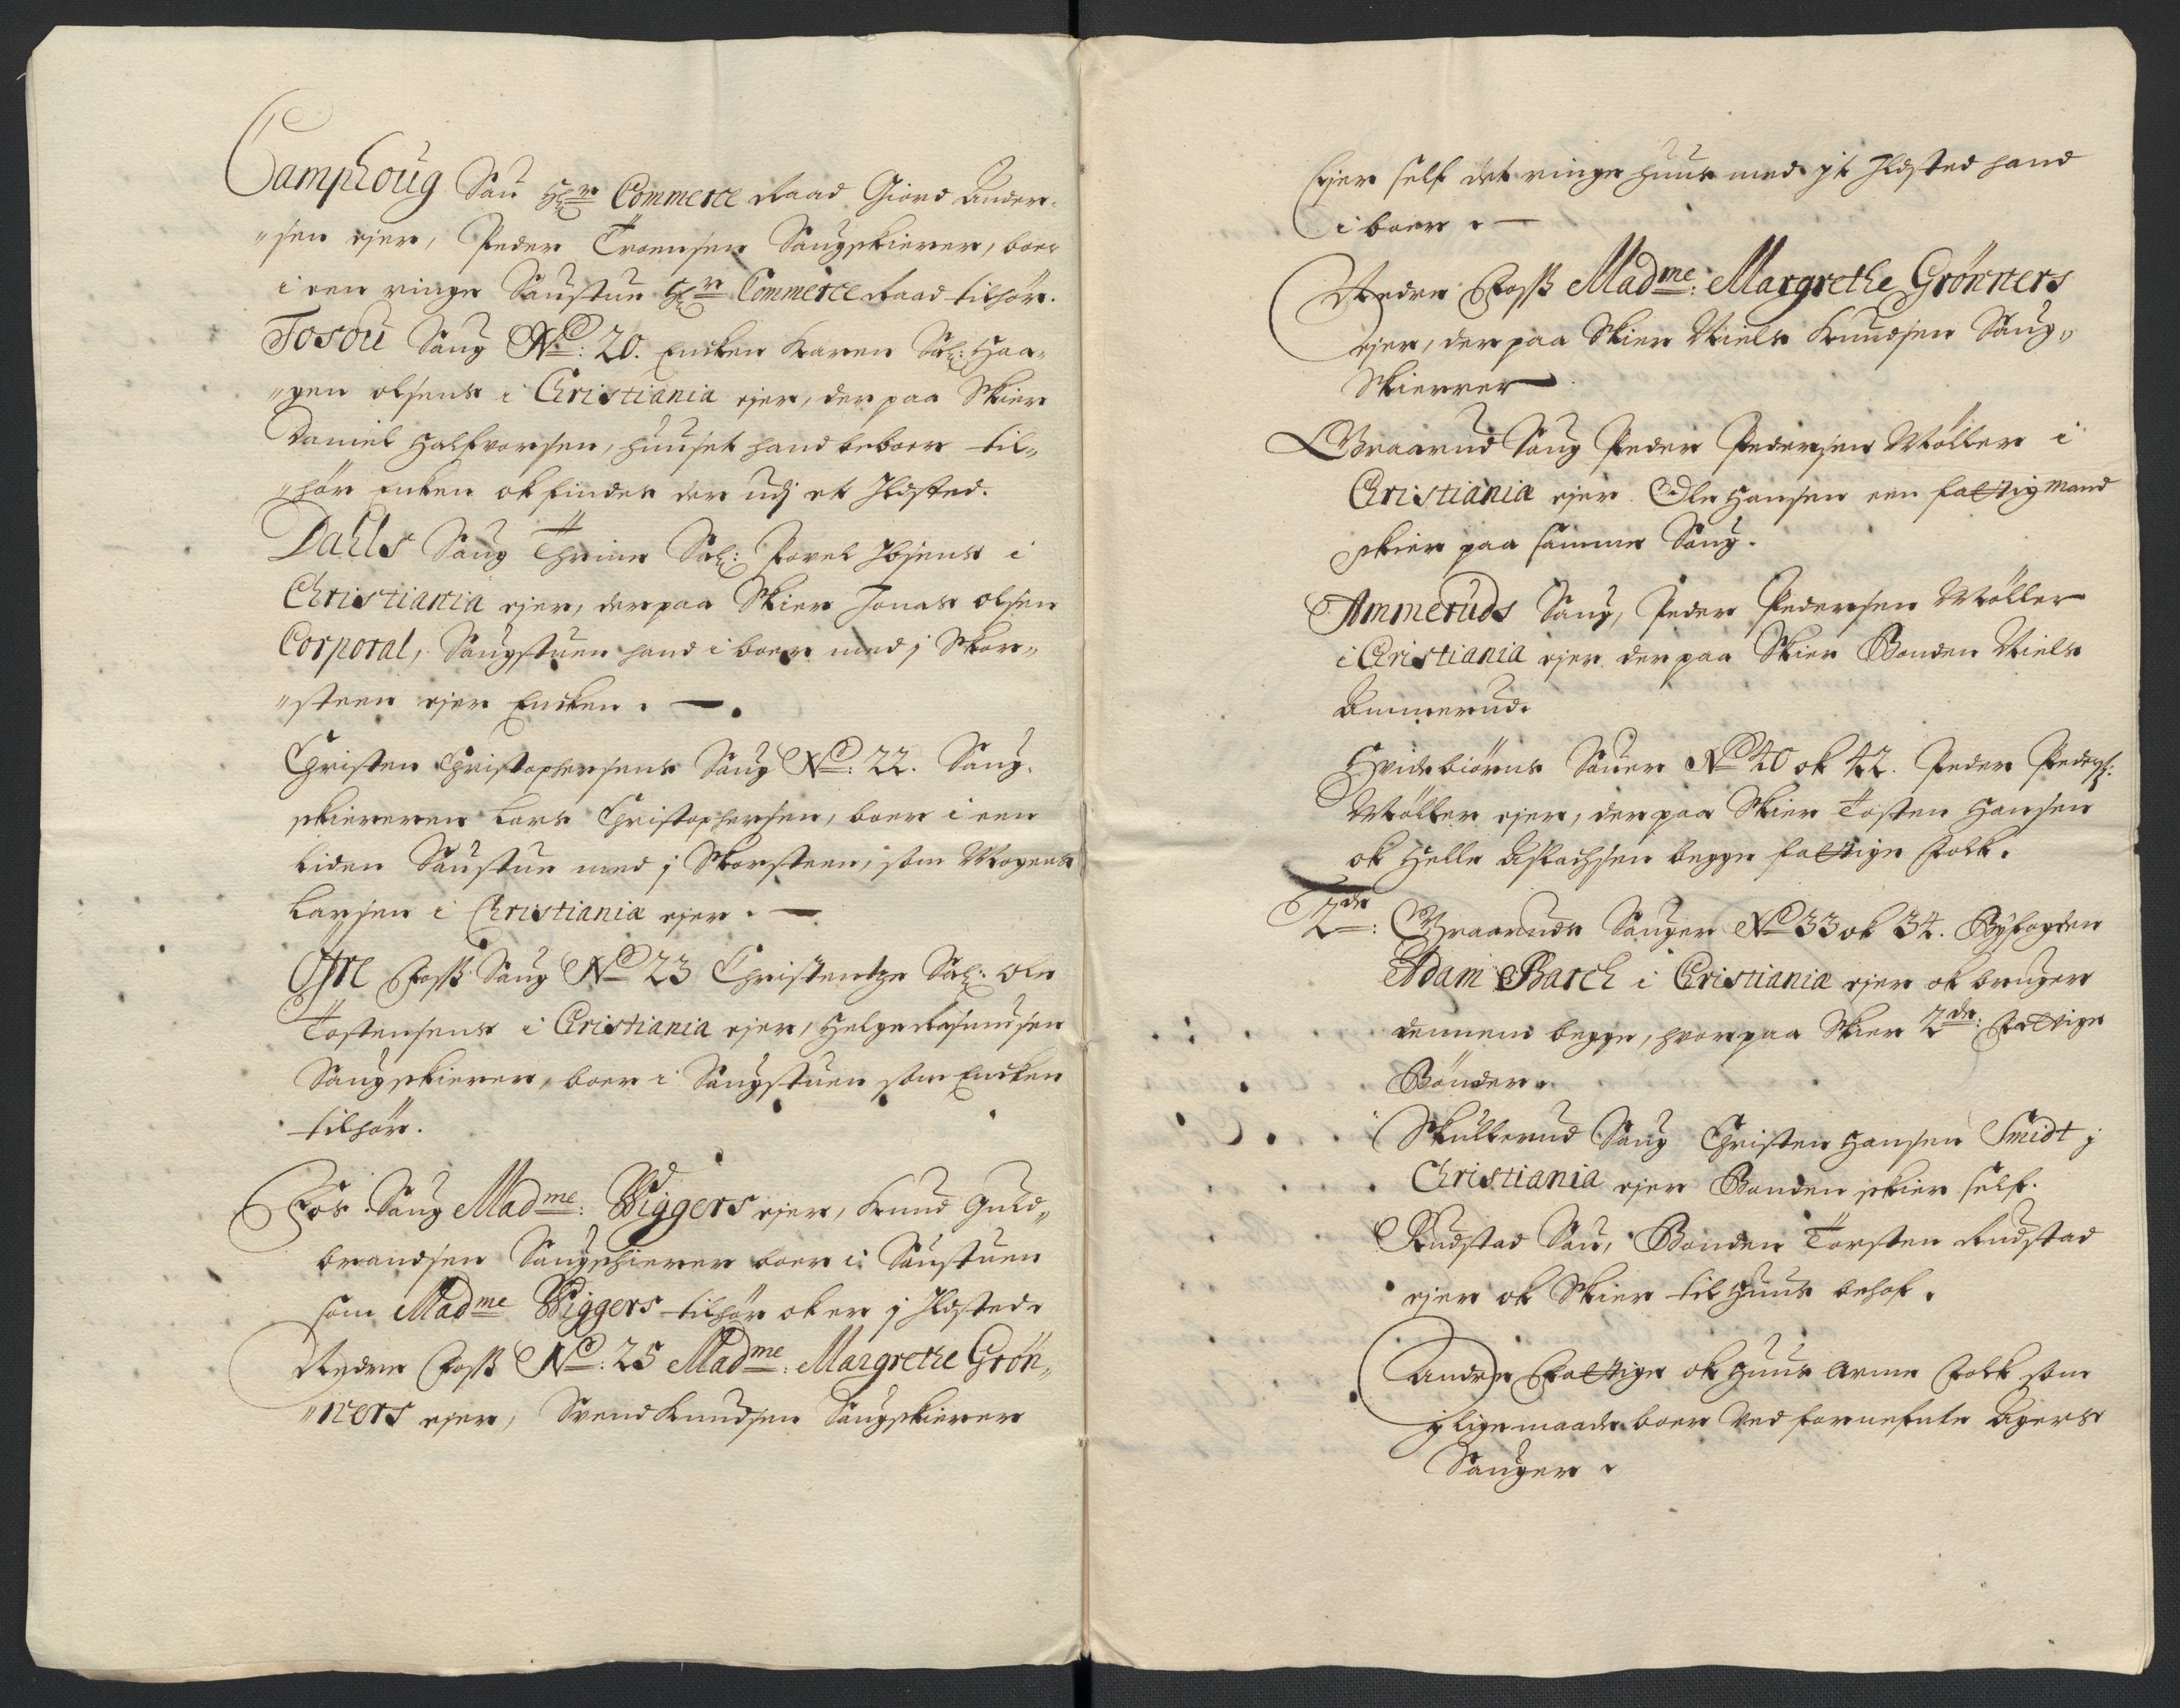 Camphoug Sau Hr Commerce Raad Giord Ander-
"sen ejer, Peder Troensen Saugskierer, boer
i een ringe Saustue Hr Commerce Raad tilhør.
Tosou Saug No: 20. Encken Karen Sal: Haa-
"gen olsens i Christiania ejer, der paa Skier
Daniel Halfvorsen, huuset hand beboer til„
"hør Enken ok findes der udj et Ildsted.
Dahls Saug Thrine Sal: Povel Ibsens i
Christiania ejer, der paa Skier Jonas olsen
Corporal, Saugstuen hand i boer med j Skor„
"steen ejer Encken. —
Christen Christophersens Saug No: 22. Saug-
skiereren Lars Christophersen, boer i een
liden Saustue med j Skorsteen, som Mogens
Larsen i Christiania ejer. —
Øfre Foss Saug No 23 Christentze Sal: Ole
Tostensens i Christiania ejer, Helge Rasmusen
Saugskierer, boer i Saugstuen som Encken
tilhør.
Fos Saug Madme: Wiggers ejer, Knud Guld„
brandsen Saugschierer boer i Saustuen
som Madme Wiggers tilhør ok er j Ildsted.
Nedre Foss No: 25 Madme: Margrethe Grøn„
"ners ejer, Svend Knudsen Saugskierer
Ejer self det ringe huus med jt Ildsted hand
i boer. —
Nedre Foss Madme: Margrethe Grønners
ejer, der paa Skier Niels Knudsen Saug„
Skierrer
Braarud Saug Peder Pedersen Møller i
Christiania ejer Ole Hansen een fattig mand
skier paa samme Saug.
Ammeruds Saug, Peder Pedersen Møller
i Christiania ejer der paa Skier Bonden Niels
Ammerud.
Hvidebiørns Sauer No 40 ok 42. Peder Peders:
Møller ejer, der paa Skier Tosten Hansen
ok Helle Aslachsen begge fattige Folk.
2de: Braaruds Sauger No 33 ok 34. Byfogden
Adam Barch i Christiania ejer ok bruger
dennem begge, hvor paa Skier 2de: Fattige
Bønder.
Skullerud Saug Christen Hansen Smidt j
Christiania ejer Bonden skier self.
Rudstad Sau, Bonden Torsten Rudstad
ejer ok Skier til Huus behof.
Andre Fattige ok Huus Arme Folk som
j ligemaade boer ved fornefnte Agers
Sauger.